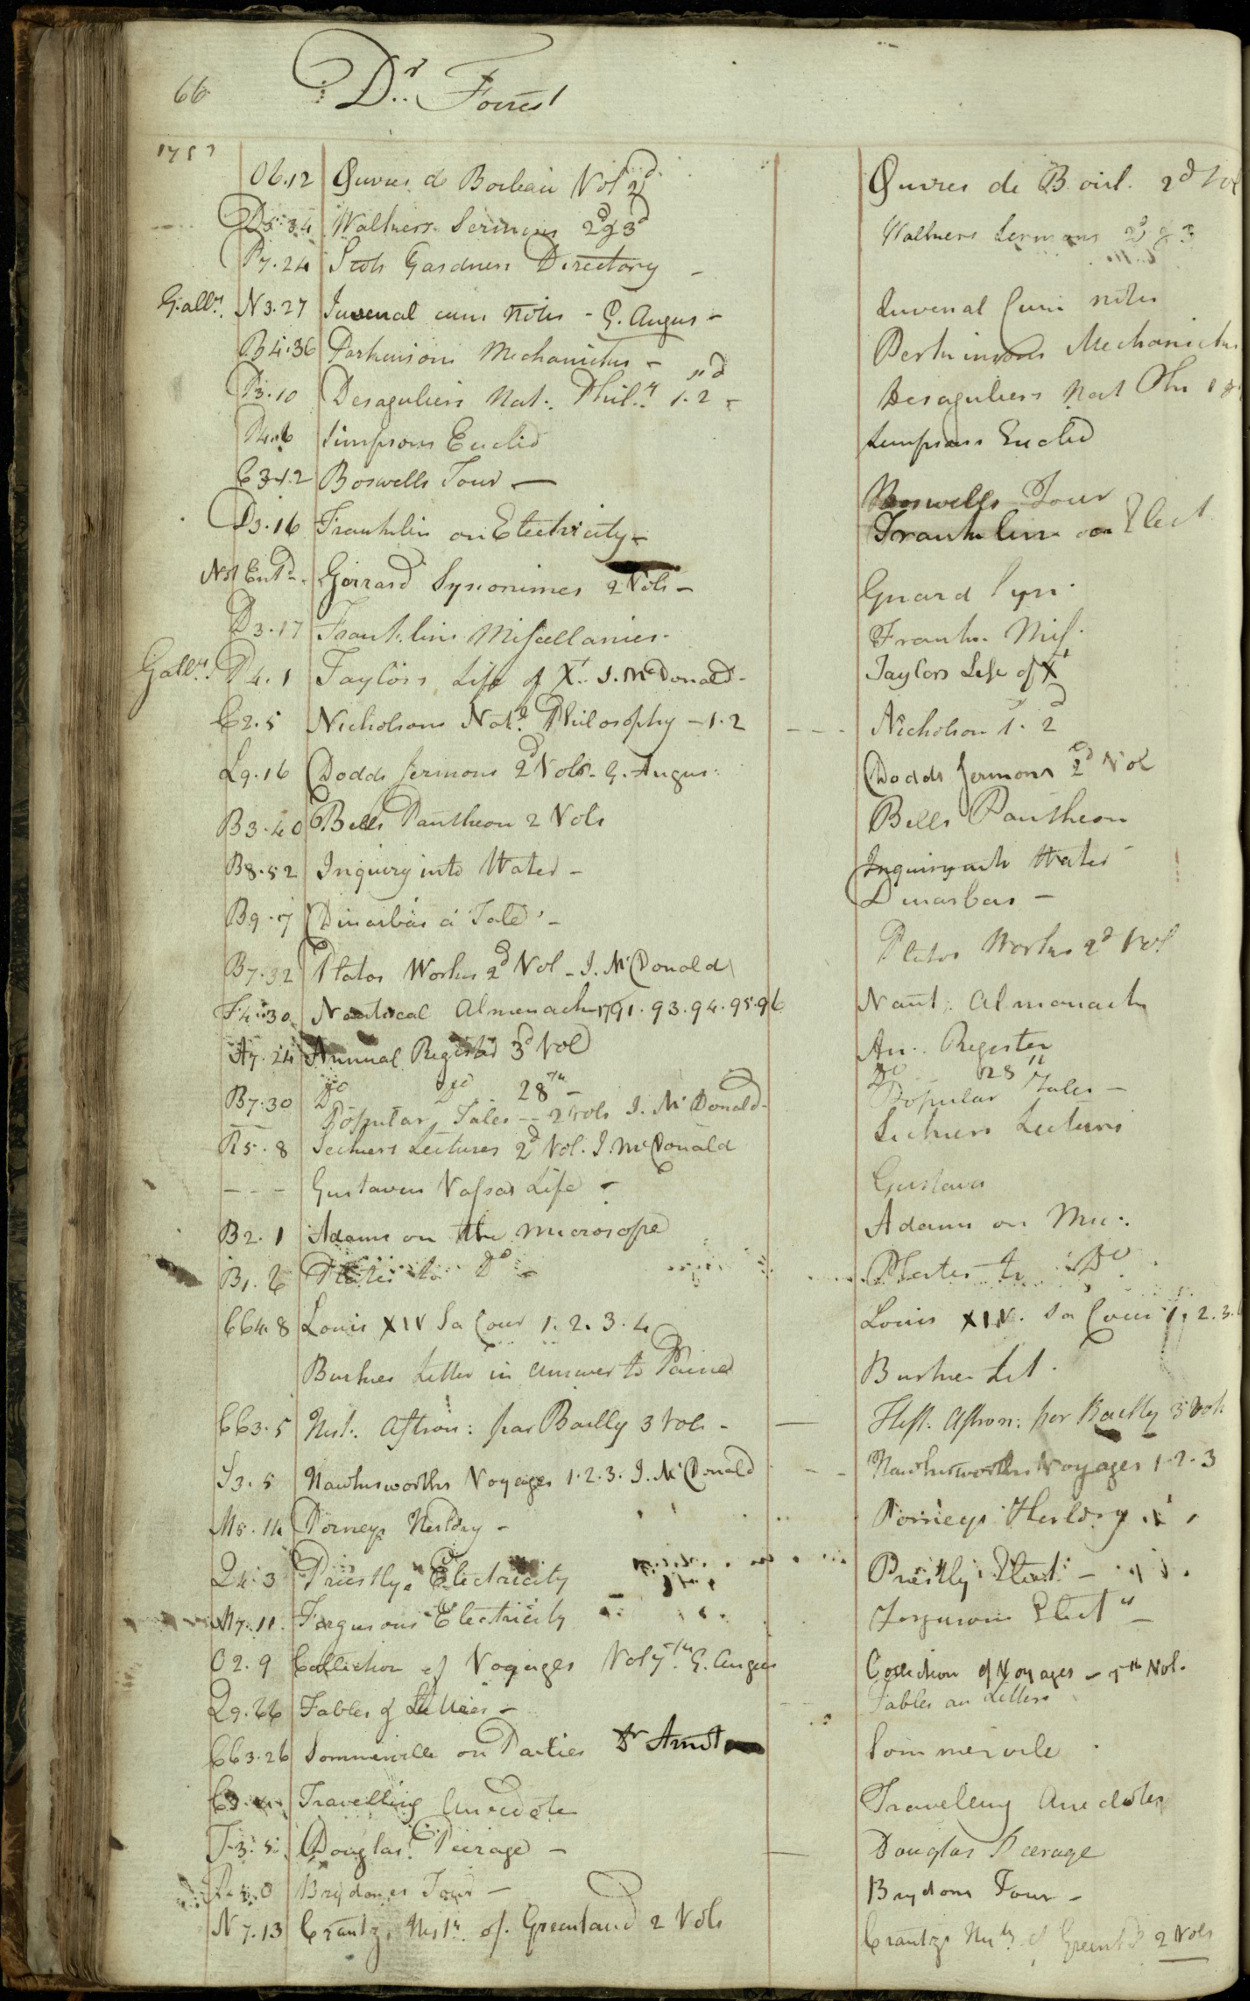 66 Dr. Forrest
O6.12 Œuvres de Boileau Vol 2d Œuvres de Boil. 2d Vol
D5.34 Walkers Sermons 2d & 3d Walkers Sermons 2d & 3
P7.24 Scots Gardners Directory -
Gallry. N3.27 Juvenal cum notes - G. Angus - Juvenal cum notes
B4.36 Parkinsons Mechanicks - Parkinsons Mechanicks
P3.10 Desaguliers Nat: Phily. 1.2 - Desaguliers Nat Phi 1 &
Simpsons Euclid Simpsons Euclid
Boswells Tour - Boswells Tour
D3.16 Franklin on Electricity - Franklin on Elect
Not Entd. Girrard Synonimes 2 Vols - Girrard Syn.
D3.17 Franklins Miscellanies. Frank. Mis.
Gallry. P4.1 Taylors Life of Xt. J. McDonald - Taylors Life of Xt
C2.5 Nicholsons Natl. Philosophy - 1.2 Nicholson 1. 2d
L9.16 Dodds Sermons 2d Vol - G. Angus. Dodds Sermons 2d Vol
B3.40 Bells Pantheon 2 Vols Bells Pantheon
B8.52 Inquiry into Water - Inquiry into Water
B9.7 Dinarbas a Tale - Dinarbas -
B7.32 Platos Works 2d Vol - J. McDonald Platos Works 2d Vol
F4.30 Nautical Almenack 1791.93.94.95.96 Naut. Almenack
A7.24 Annual Register 3d Vol An. Register
Do Do 28th - Do 28th
B7.30 Popular Tales - 2 Vols J. McDonald - Popular Tales -
R5.8 Seckers Lectures 2d Vol. J. McDonald Seckers Lectures
- - - Gustavus Vassas Life - Gustavus
B2.1 Adams on the microscope Adams on Mic:
B1.6 Plates to Do - Plates to Do
CC4.8 Louis XIV Sa Cour 1.2.3.4 Louis XIV. Sa Cour 1.2.3.
Burkes Letter in answer to Paine Burkes Let.
CC3.5 Hist. Astron: par Bailly 3 Vols - Hist. Astron: par Bailly 3 Vols
S3.5 Hawkesworths Voyages 1.2.3. J. McDonald Hawkesworths Voyages 1.2.3
M5.14 Porneys Herldry - Porneys Herldry
Q4.3 Priestlys Electricity Priestly Elect. -
M7.11. Fergusons Electricity Fergusons Electy -
O2.9 Collection of Voyages Vol 7th. G. Angus Collection of Voyages - 7th Vol.
Q9.66 Fables of Letters - Fables an Letters
CC3.26 Sommerville on Parties Dr Sommervile
Travelling Anecdote Traveleng Anecdotes
T3.5 Douglas. Peerage - Douglas Peerage
Brydones Tour - Brydons Tour -
N7.13 Crantz, Histy. of Greenland 2 Vols Crantzs Histy. of Greenld 2 Vols